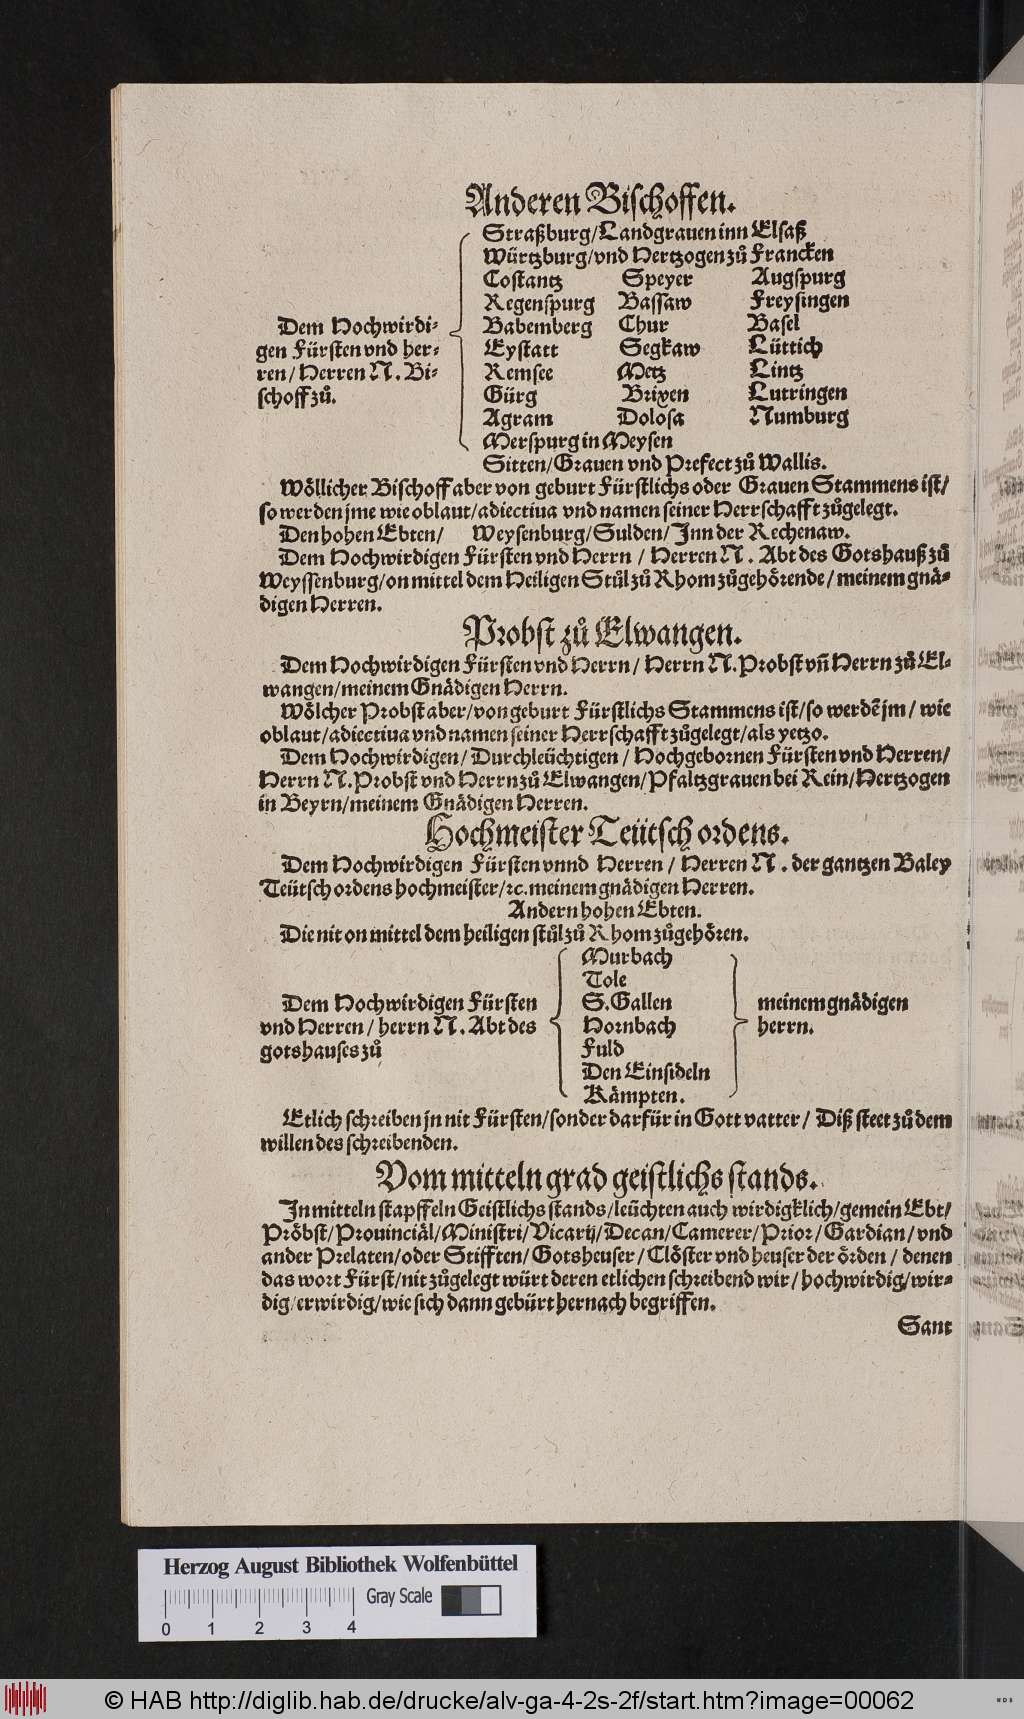 Anderen Bischoffen.
Straßburg/Landgrauen inn Elsaß
Würtzburg/vnd Hertzogen zů Francken
Costantz Speyer Augspurg
Regenspurg Bassaw Freysingen
Dem Hochwirdi-
Babemberg Chur Basel
gen Fürsten vnd her-
Eystatt Segkaw Lüttich
ren/Herren N. Bi-
Remsee Metz Lintz
schoff zů.
Gürg Brixen Lutringen
Agram Dolosa Numburg
Merspurg in Meysen
Sitten/Grauen vnd Prefect zů Wallis.
Wöllicher Bischoff aber von geburt Fürstlichs oder Grauen Stammens ist/
so werden jme wie oblaut/adiectiua vnd namen seiner Herrschafft zůgelegt.
Den hohen Ebten/ Weysenburg/Sulden/Inn der Rechenaw.
Dem Hochwirdigen Fürsten vnd Herrn / Herren N. Abt des Gotshauß zů
Weyssenburg/on mittel dem Heiligen Stůl zů Rhom zůgehörende/meinem gnä-
digen Herren.
Probst zů Elwangen.
Dem Hochwirdigen Fürsten vnd Herrn/ Herrn N. Probst vñ Herrn zů El-
wangen/meinem Gnädigen Herrn.
Wölcher Probst aber/von geburt Fürstlichs Stammens ist/so werdẽ jm/ wie
oblaut/adiectiua vnd namen seiner Herrschafft zůgelegt/als yetzo.
Dem Hochwirdigen/Durchleüchtigen/Hochgebornen Fürsten vnd Herren/
Herrn N. Probst vnd Herrn zů Elwangen/Pfaltzgrauen bei Rein/Hertzogen
in Beyrn/meinem Gnädigen Herren.
Hochmeister Teütsch ordens.
Dem Hochwirdigen Fürsten vnnd Herren / Herren N. der gantzen Baley
Teütsch ordens hochmeister/ꝛc. meinem gnädigen Herren.
Andern hohen Ebten.
Die nit on mittel dem heiligen stůl zů Rhom zůgehören.
Murbach
Tole
Dem Hochwirdigen Fürsten S. Gallen meinem gnädigen
vnd Herren / herrn N. Abt des Hornbach herrn.
gotshauses zů Fuld
Den Einsideln
Kämpten.
Etlich schreiben jn nit Fürsten/sonder darfür in Gott vatter/ Diß steet zů dem
willen des schreibenden.
Vom mitteln grad geistlichs stands.
In mitteln stapffeln Geistlichs stands/leüchten auch wirdigklich/gemein Ebt/
Pröbst/Prouinciäl/Ministri/Vicarij/Decan/Camerer/Prior/Gardian/vnd
ander Prelaten/oder Stifften/Gotsheuser/Clöster vnd heuser der örden/ denen
das wort Fürst/nit zůgelegt würt deren etlichen schreibend wir/hochwirdig/wir-
dig/erwirdig/wie sich dann gebürt hernach begriffen.
Sant
Herzog August Bibliothek Wolfenbüttel
Gray Scale
0 1 2 3 4
© HAB http://diglib.hab.de/drucke/alv-ga-4-2s-2f/start.htm?image=00062